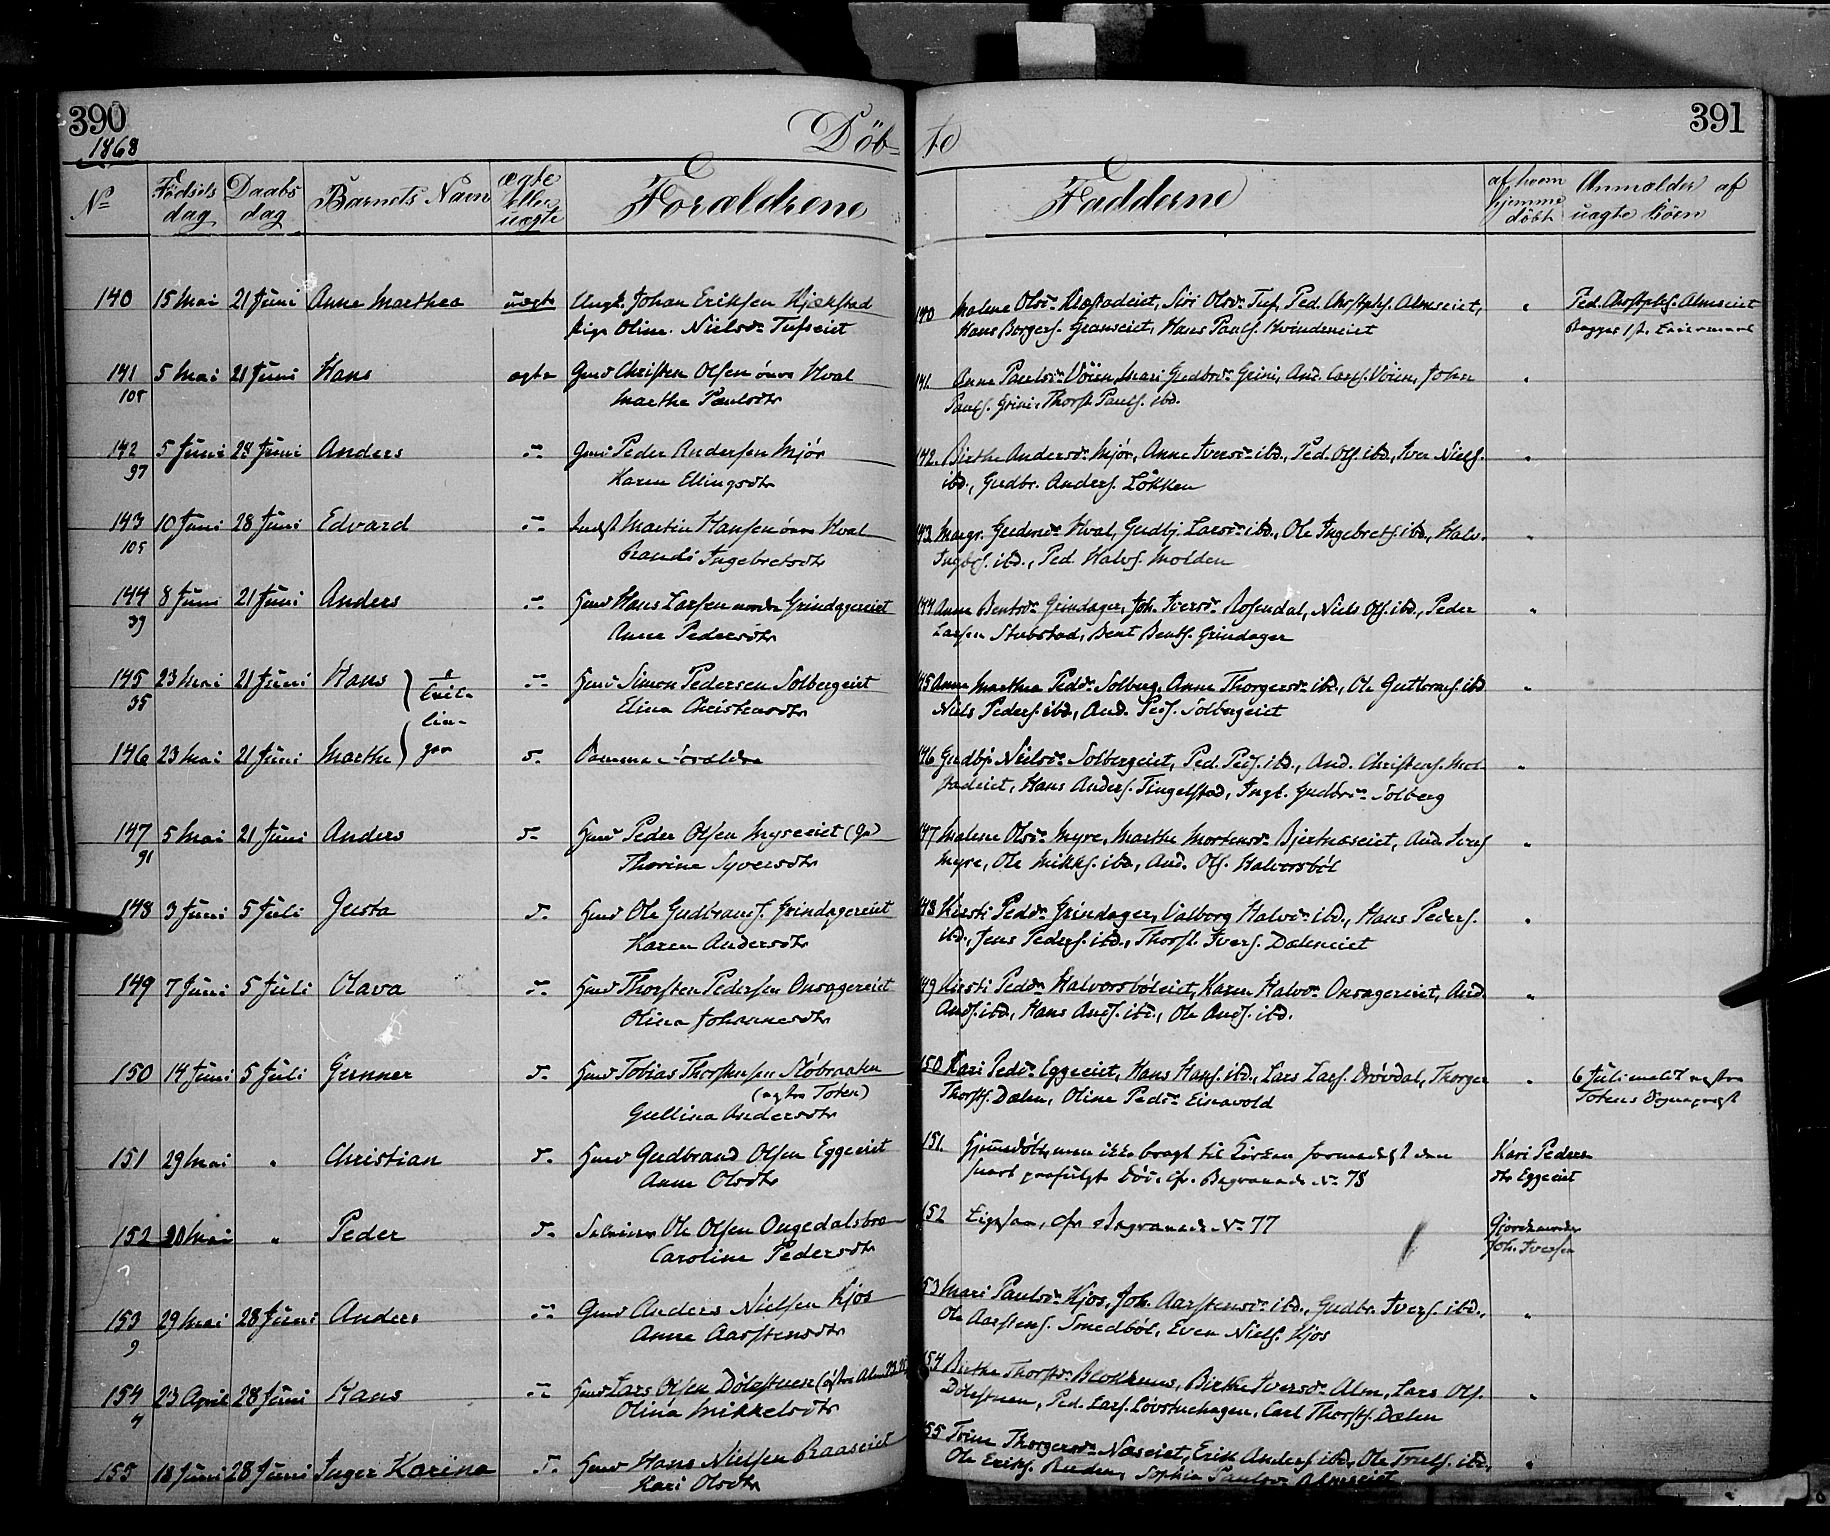 390
1868
Döb-
№ Fødsels dag Daabs dag Barnets Navn ægte eller uægte Forældrene
140 15 Mai 21 Juni Anne Marthea uægte Ungk. Johan Eriksen
Pige Oline Nielsdr. Tufseiet
141 5 Mai 21 Juni Hans ægte Gmd Christen Olsen övre Hval
108 Marthe Paulsdtr
142 5 Juni 28 Juni Anders Gmd Peder Andersen Mjör
97 Karen Ellingsdtr
143 10 Juni 28 Juni Edvard Martin Hansen övre Hval
105 Randi Ingebretsdtr
144 8 Juni 21 Juni Anders Hmd Hans Larsen Grindagereiet
39 Anne Pedersdtr
145 23 Mai 21 Juni Hans Hmd Simon Pedersen Solbergeiet
35 Eline Christensdtr
Tvil-
lin-
ger
146 23 Mai 21 Juni Marthe Samme Forældre
147 5 Mai 21 Juni Anders Hmd Peder Olsen Myreeiet
91 Thorine Syversdtr
148 3 Juni 5 Juli Gusta Hmd Ole Gudbrands. Grindagereiet
Karen Andersdtr
149 7 Juni 5 Juli Olava Hmd Thorsten Pedersen Onsagereiet
Olina Johannesdtr
150 14 Juni 5 Juli Gunner Hmd Tobias Thorstensen
Toten)
Gullina Andersdtr
151 29 Mai " Christian Hmd Gudbrand Olsen Eggeeiet
Anne Olsdtr
152 20 Mai " Peder Ole Olsen
Caroline Pedersdtr
153 29 Mai 28 Juni Anders Gmd Anders Nielsen Kjos
9 Anne Aarstensdtr
154 23 April 28 Juni Hans Hmd Lars Olsen
4 Olina Mikkelsdtr
155 18 Juni 28 Juni Inger Karine Hmd Hans Nielsen Raaseiet
Kari Olsdtr
te
391
Fadderne af hvem hjemme döbt Anmelder af uægte Börn
140 Malene Olsdr. Siri Olsdr. Tuf, Ped. Chrstphs. Almseiet, " Ped. Chrstphs. Almseiet
Hans Borgers. Granseiet, Hans Pauls.
141. Anne Paulsdr. Vöien, Mari Gudbrdr. Grini, And. Lars. Vöien, John "
Pauls. Grini, Thorst. Pauls. ibd.
142. Birthe Andersdr. Mjör, Anne Iversdr. ibd., Ped. Ols. ibd., Iver Niels. "
ibd., Gudbr. Anders. Lökken
143. Hval, Gudbj. Larsdr. ibd., Ole Ingebrets. ibd., Halv. "
ibd., Ped. Halvs. Molden
144 Anne Bentsdr. Grindager, Joh. Iversdr. Rosendal, Niels Ols. ibd., Peder "
Larsen Stubstad, Bent Bents. Grindager
145 Anne Marthea Pedsdr. Solberg, Anne Thorgersdr. ibd., Ole Guttorms. ibd. "
Niels Peders. ibd., And. Peds. Solbergeiet
146 Gudbj. Nielsdr. Solbergeiet, Ped. Peds. ibd., And. Christens. "
Hans Anders. Tingelstad, Ingb. Gudbrdr. Solberg
147 Malene Olsdr. Myre, Marthe Mortensdr. And. Ivers. "
Myre, Ole Mikkls. ibd., And. Ols. Halvorsböl
148 Kirsti Pedsdr. Grindager, Valborg Halvdr. ibd., Hans Peders. "
ibd., Jens Peders. ibd., Thorst. Ivers. Dæhneiet
149 Kirsti Pedsdr. Halvorsböleiet, Karen Halvdr. Onsagereiet, And. "
Ands. ibd., Hans Ands. ibd., Ole Ands. ibd.
150 Kari Pedsdr. Eggeeiet, Hans Hans. ibd., Lars Lars. Thorger " 6 Juli meldt
Thorsts. Dælen, Oline Pedsdr. Totens Sogneprest
151. Hjemmedöbt, men ikke bragt til Kirken formedelst den Kari Peders
snart paafulgte Död. cfr. Begravede № 78 dtr Eggeeiet
152 cfr. Begravede № 77 Gjordemoder
Joh. Iversen
153 Mari Paulsdr. Kjos, Joh. Aarstensdr. ibd., Gudbr. Ivers. ibd., "
Ole Aarstens. Smedböl, Even Niels. Kjos
154 Birthe Thorstdr. Birthe Iversdr. Alm, Lars Ols. "
Ped. Lars. Lövstuehagen, Carl Thorsts. Dælen
155 Trine Thorgersdr. Næseiet, Erik Anders. ibd., Ole Truls. ibd., "
Ole Eriks. Sophie Paulsdr. Almseiet